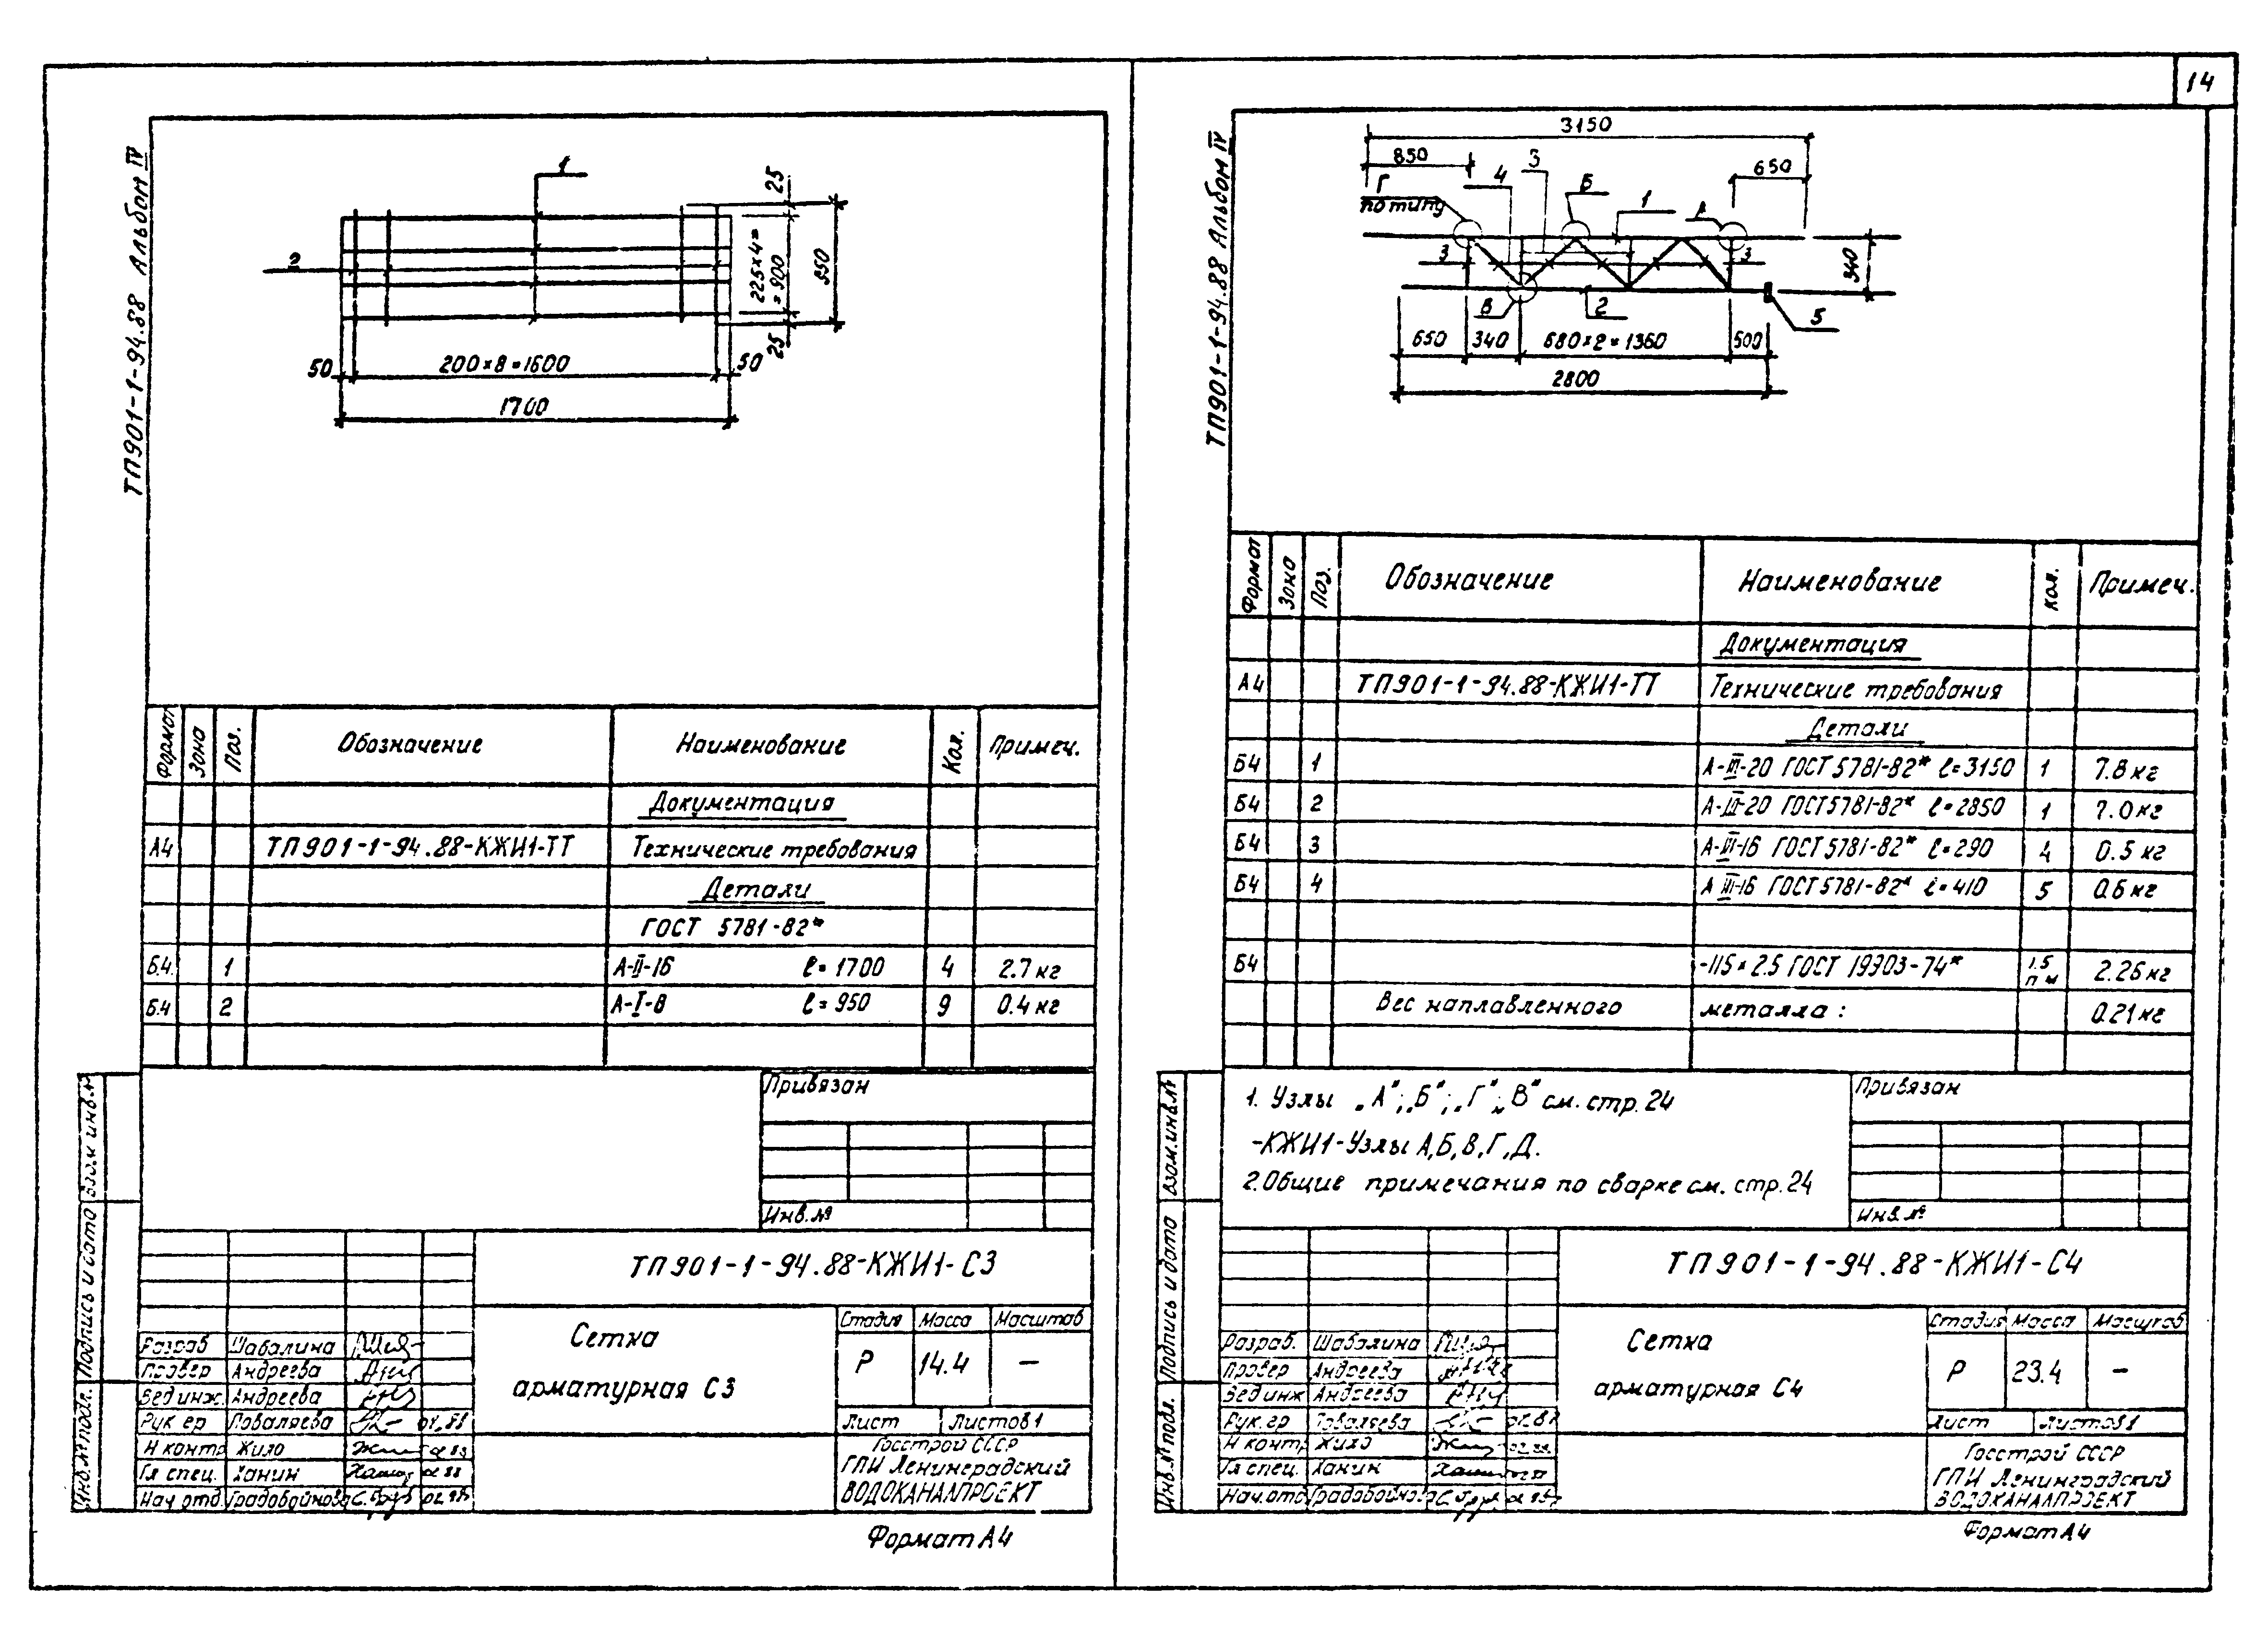 14
ТП901-1-94.88 Альбом IV
1
2
25
225×4=
=900
25
950
50
200×8=1600
50
1700
Формат
Зона
Поз.
Обозначение
Наименование
Кол.
Примеч.
Документация
А4 ТП901-1-94.88-КЖИ1-ТТ Технические требования
Детали
ГОСТ 5781-82*
Б4. 1 А-II-16 ℓ=1700 4 2.7 кг
Б4 2 А-I-8 ℓ=950 9 0.4 кг
Привязан
Инв.№
Взам инв.№
Подпись и дата
Инв.№ подл.
ТП901-1-94.88-КЖИ1-С3
Сетка
арматурная С3
Стадия Масса Масштаб
Р 14.4 —
Лист Листов 1
Госстрой СССР
ГПИ Ленинградский
ВОДОКАНАЛПРОЕКТ
Разраб Шабалина
Провер Андреева
Вед инж. Андреева
Рук гр Поваляева
Н контр Жило
Гл спец. Ханин
Нач отд. Градобойнова
Формат А4
ТП901-1-94.88 Альбом IV
3150
850
650
Г
по типу
4
3
Б
1
А
3
3
340
В
2
5
650
340
680×2=1360
500
2800
Формат
Зона
Поз.
Обозначение
Наименование
Кол.
Примеч.
Документация
А4 ТП901-1-94.88-КЖИ1-ТТ Технические требования
Детали
Б4 1 А-III-20 ГОСТ 5781-82* ℓ=3150 1 7.8 кг
Б4 2 А-III-20 ГОСТ 5781-82* ℓ=2850 1 7.0 кг
Б4 3 А-III-16 ГОСТ 5781-82* ℓ=290 4 0.5 кг
Б4 4 А III-16 ГОСТ 5781-82* ℓ=410 5 0.6 кг
Б4 -115×2.5 ГОСТ 19903-74* 1.5 п м 2.26 кг
Вес наплавленного металла: 0.21 кг
1. Узлы „А"; „Б"; „Г"; „В" см. стр. 24
-КЖИ1-Узлы А,Б,В,Г,Д.
2.Общие примечания по сварке см. стр. 24
Привязан
Инв.№
Взам.инв.№
Подпись и дата
Инв.№ подл.
ТП901-1-94.88-КЖИ1-С4
Сетка
арматурная С4
Стадия Масса Масштаб
Р 23.4 —
Лист Листов 1
Госстрой СССР
ГПИ Ленинградский
ВОДОКАНАЛПРОЕКТ
Разраб. Шабалина
Провер Андреева
Вед инж Андреева
Рук. гр Поваляева
Н контр Жило
Гл спец. Ханин
Нач. отд Градобойнова
Формат А4